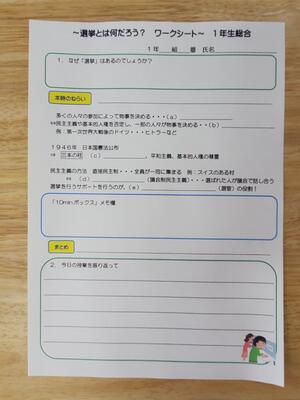 ～選挙とは何だろう？　ワークシート～　１年生総合
１年　組　番　氏名
１．なぜ「選挙」はあるのでしょうか？
本時のねらい
多くの人々の参加によって物事を決める・・・（a）
⇔民主主義や基本的人権を否定し、一部の人々が物事を決める・・（b）
例：第一次世界大戦後のドイツ・・・ヒトラーなど
１９４６年　日本国憲法公布
⇒ 三本の柱 （c）、平和主義、基本的人権の尊重
民主主義の方法　直接民主制・・・全員が一同に集まる　例：スイスのある村
⇔ （d）（議会制民主主義）・・・選ばれた人が議会で話し合う
選挙を行うサポートを行うのが、（e）（選管）の役割！
「10min.ボックス」メモ欄
まとめ
２．今日の授業を振り返って